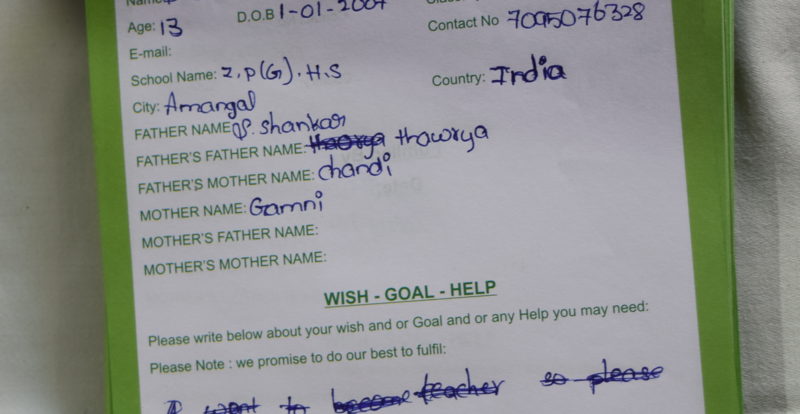 Age: 13 D.O.B 1-01-2007
Contact No 7095076328
E-mail:
School Name: Z.P(G).H.S Country: India
City: Amangal
FATHER NAME P. Shankar
FATHER'S FATHER NAME: thawrya
FATHER'S MOTHER NAME: chandi
MOTHER NAME: Gamni
MOTHER'S FATHER NAME:
MOTHER'S MOTHER NAME:
WISH - GOAL - HELP
Please write below about your wish and or Goal and or any Help you may need:
Please Note : we promise to do our best to fulfil:
I want to become teacher so please